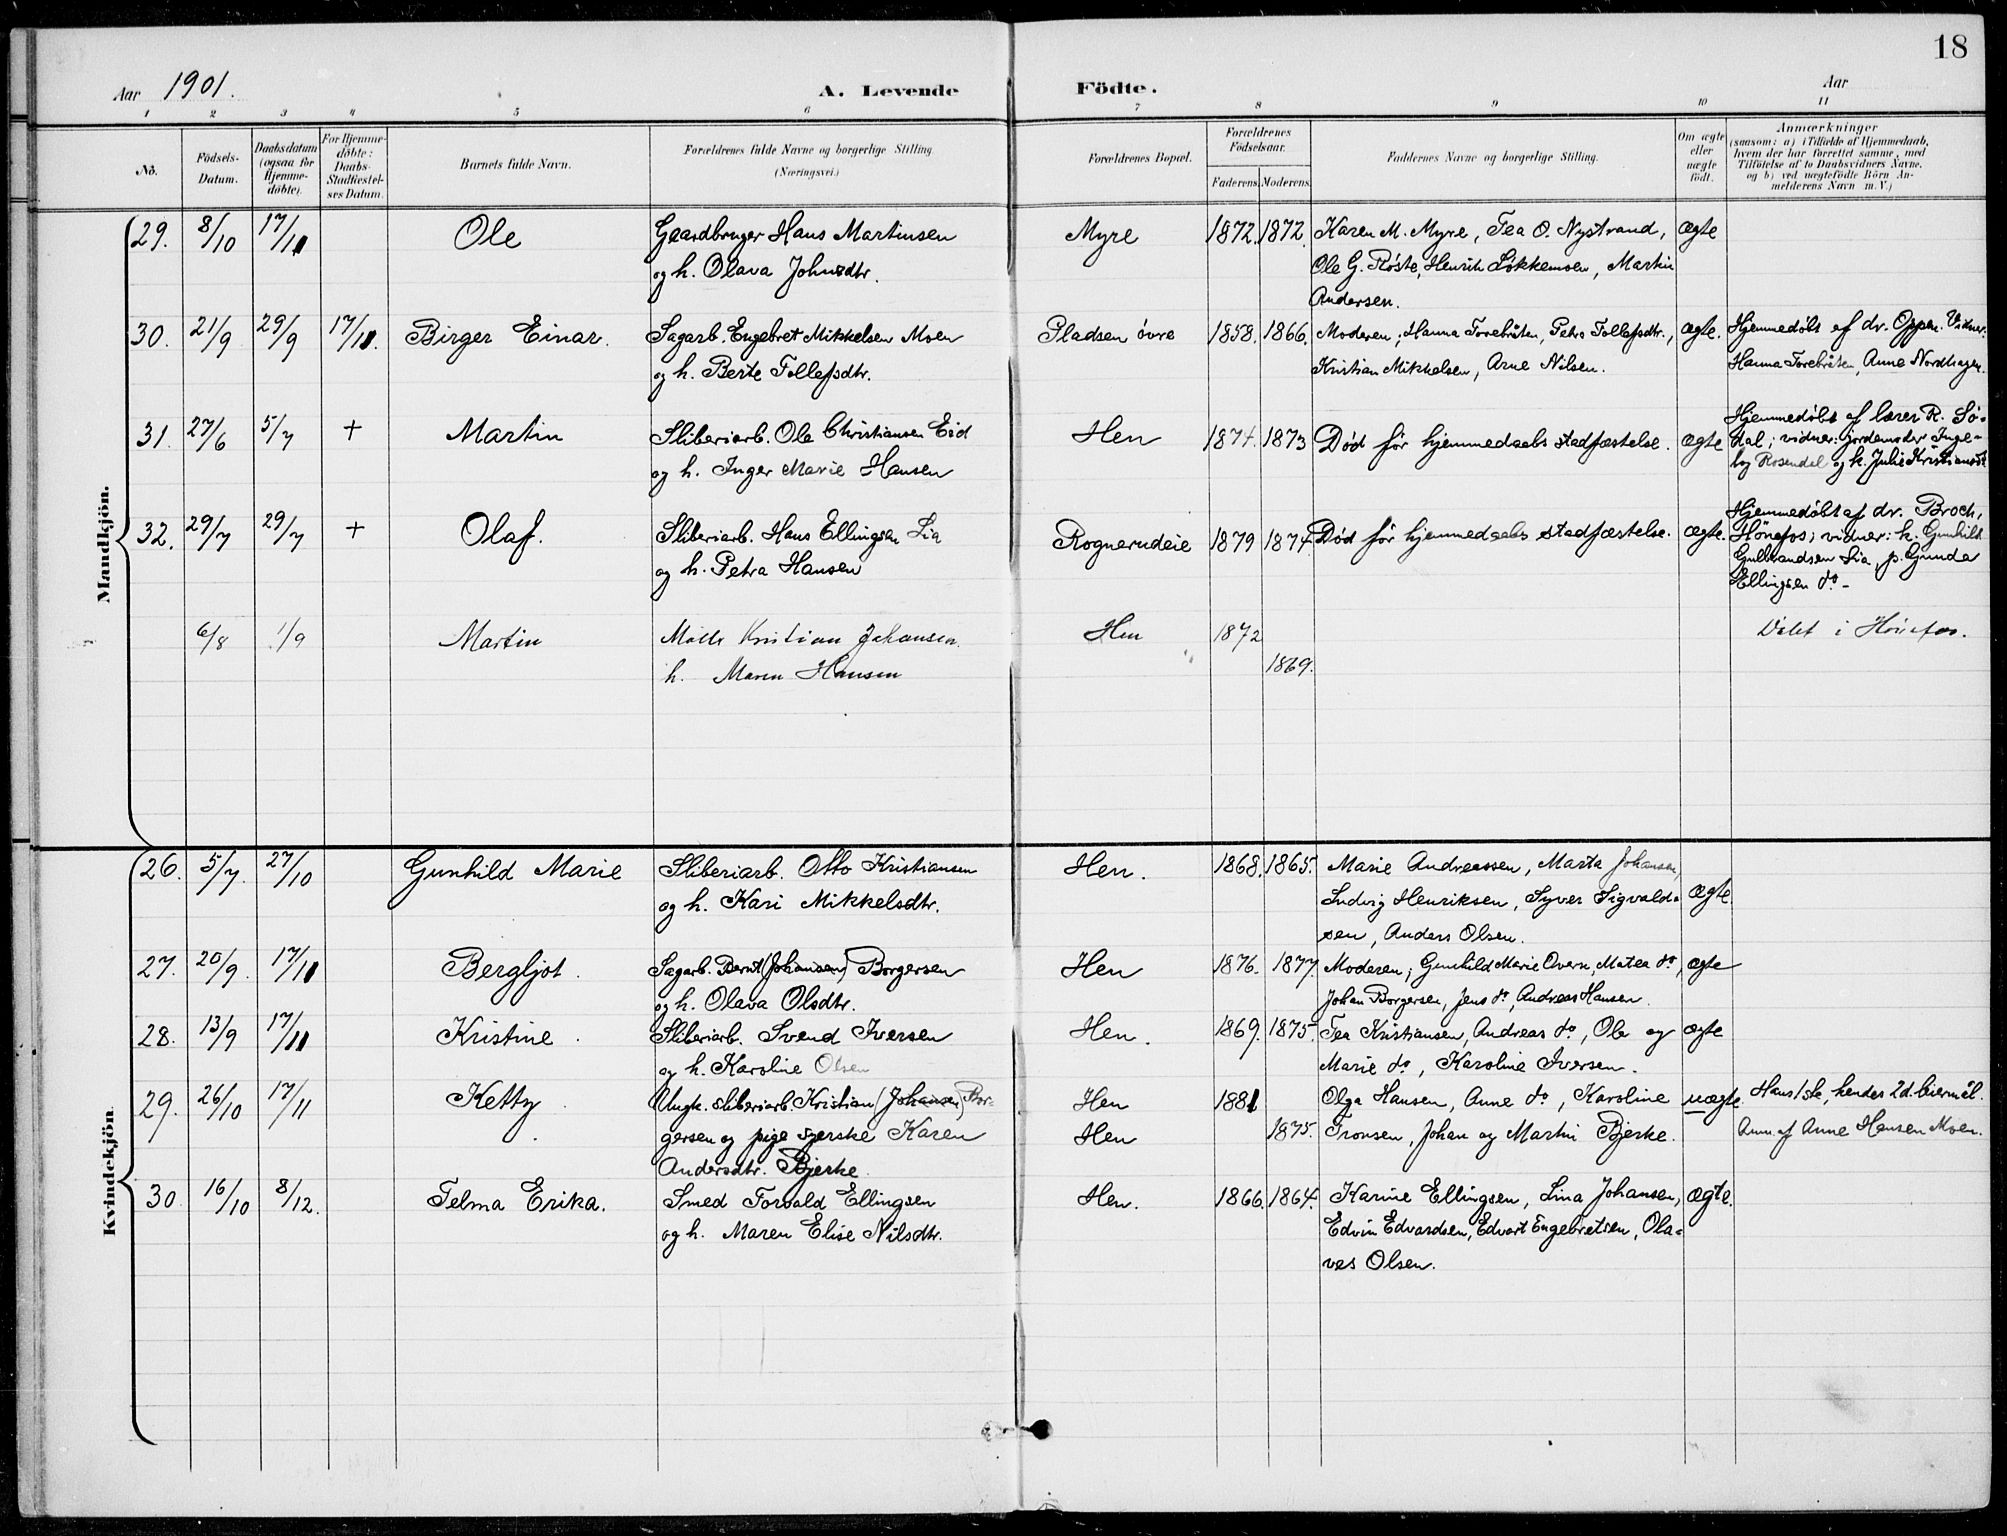 18
Aar 1901. A. Levende Födte. Aar
1 2 3 4 5 6 7 8 9 10 11
No. Födsels-Datum. Daabsdatum (ogsaa for Hjemme-döbte). For Hjemme-döbte: Daabs-Stadfæstel-ses Datum. Barnets fulde Navn. Forældrenes fulde Navne og borgerlige Stilling. (Næringsvei.) Forældrenes Bopæl. Forældrenes Födselsaar. Faderens. Moderens. Faddernes Navne og borgerlige Stilling. Om ægte eller uægte født. Anmærkninger (saasom: a) i Tilfælde af Hjemmedaab, hvem der har forrettet samme, med Tilföielse af to Daabsvidners Navne. og b) ved uægtefödte Börn An-melderens Navn m. V.)
Mandkjön.
29. 8/10 17/11 Ole Gaardbruger Hans Martinsen Myre 1872. 1872. Karen M. Myre, Tea O. Nystrand, ægte
og h. Olava Johnsdtr. Ole G. Røste, Henrik Løkkemoen, Martin
Andersen.
30. 21/9 29/9 17/11. Birger Einar. Sagarb. Engebret Mikkelsen Moen Pladsen övre 1858. 1866. Moderen, Hanna Forebråten, Petra Tollefsdtr., ægte. Hjemmedøbt af dr. Oppen. Vidner:
og h. Berte Tollefsdtr. Kristian Mikkelsen, Arne Nilsen. Hanna Forebråten, Anne Nordhagen.
31. 27/6 5/7 + Martin Sliberiarb. Ole Christiansen Eid Hen 1874. 1873 Død før hjemmedaabs stadfæstelse. ægte Hjemmedøbt af lærer R. Sö-
dal; vidner: jordemoder Inge-
og h. Inger Marie Hansen borg Rosendal og k. Julie Kristiansdt
32. 29/7 29/7 + Olaf. Sliberiarb. Hans Ellingsen Lia Rognerudeie 1879 1874 Død før hjemmedaabs stadfæstelse. ægte. Hjemmedøbt af dr. Broch,
Hönefos; vidner: k. Gunhild
og h. Petra Hansen Gulbrandsen Lia, p. Gunda
Ellingsen do-
6/8 1/9 Martin Kristian Johansen. Hen 1872 Döbt i Hönefos.
h. Maren Hansen 1869.
Kvindekjön.
26. 5/7. 27/10 Gunhild Marie Sliberiarb. Otto Kristiansen Hen. 1868. 1865. Marie Andreassen, Marta Johansen,
og h. Kari Mikkelsdtr. Ludvig Henriksen, Syver Sigvald- ægte.
sen, Anders Olsen.
27. 20/9. 17/11 Bergljot. Sagarb. Bernt (Johansen) Borgersen Hen 1876. 1877. Moderen; Gunhild Marie Overn, Matea do, ægte
og h. Olava Olsdtr. Johan Borgersen, Jens do, Andreas Hansen.
28. 13/9 17/11 Kristine. Sliberiarb. Svend Iversen Hen. 1869. 1875. Tea Kristiansen, Andreas do, Ole og ægte
og h. Karoline Olsen Marie do, Karoline Iversen.
29. 26/10 17/11 Ketty. Ungk. sliberiarb. Kristian (Johansen) Bor- Hen 1881 Olga Hansen, Anne do, Karoline uægte. Hans 1ste, hendes 2d. leiermål.
gersen og pige syerske Karen Hen 1875. Tronsen, Johan og Martin Bjerke. Anm. af Anne Hansen Moen.
Andersdtr. Bjerke.
30. 16/10 8/12. Telma Erika. Smed Torvald Ellingsen Hen. 1866. 1864. Karine Ellingsen, Lina Johansen, ægte.
og h. Maren Elise Nilsdtr. Edvin Edvardsen, Edvart Engebretsen, Ola-
ves Olsen.